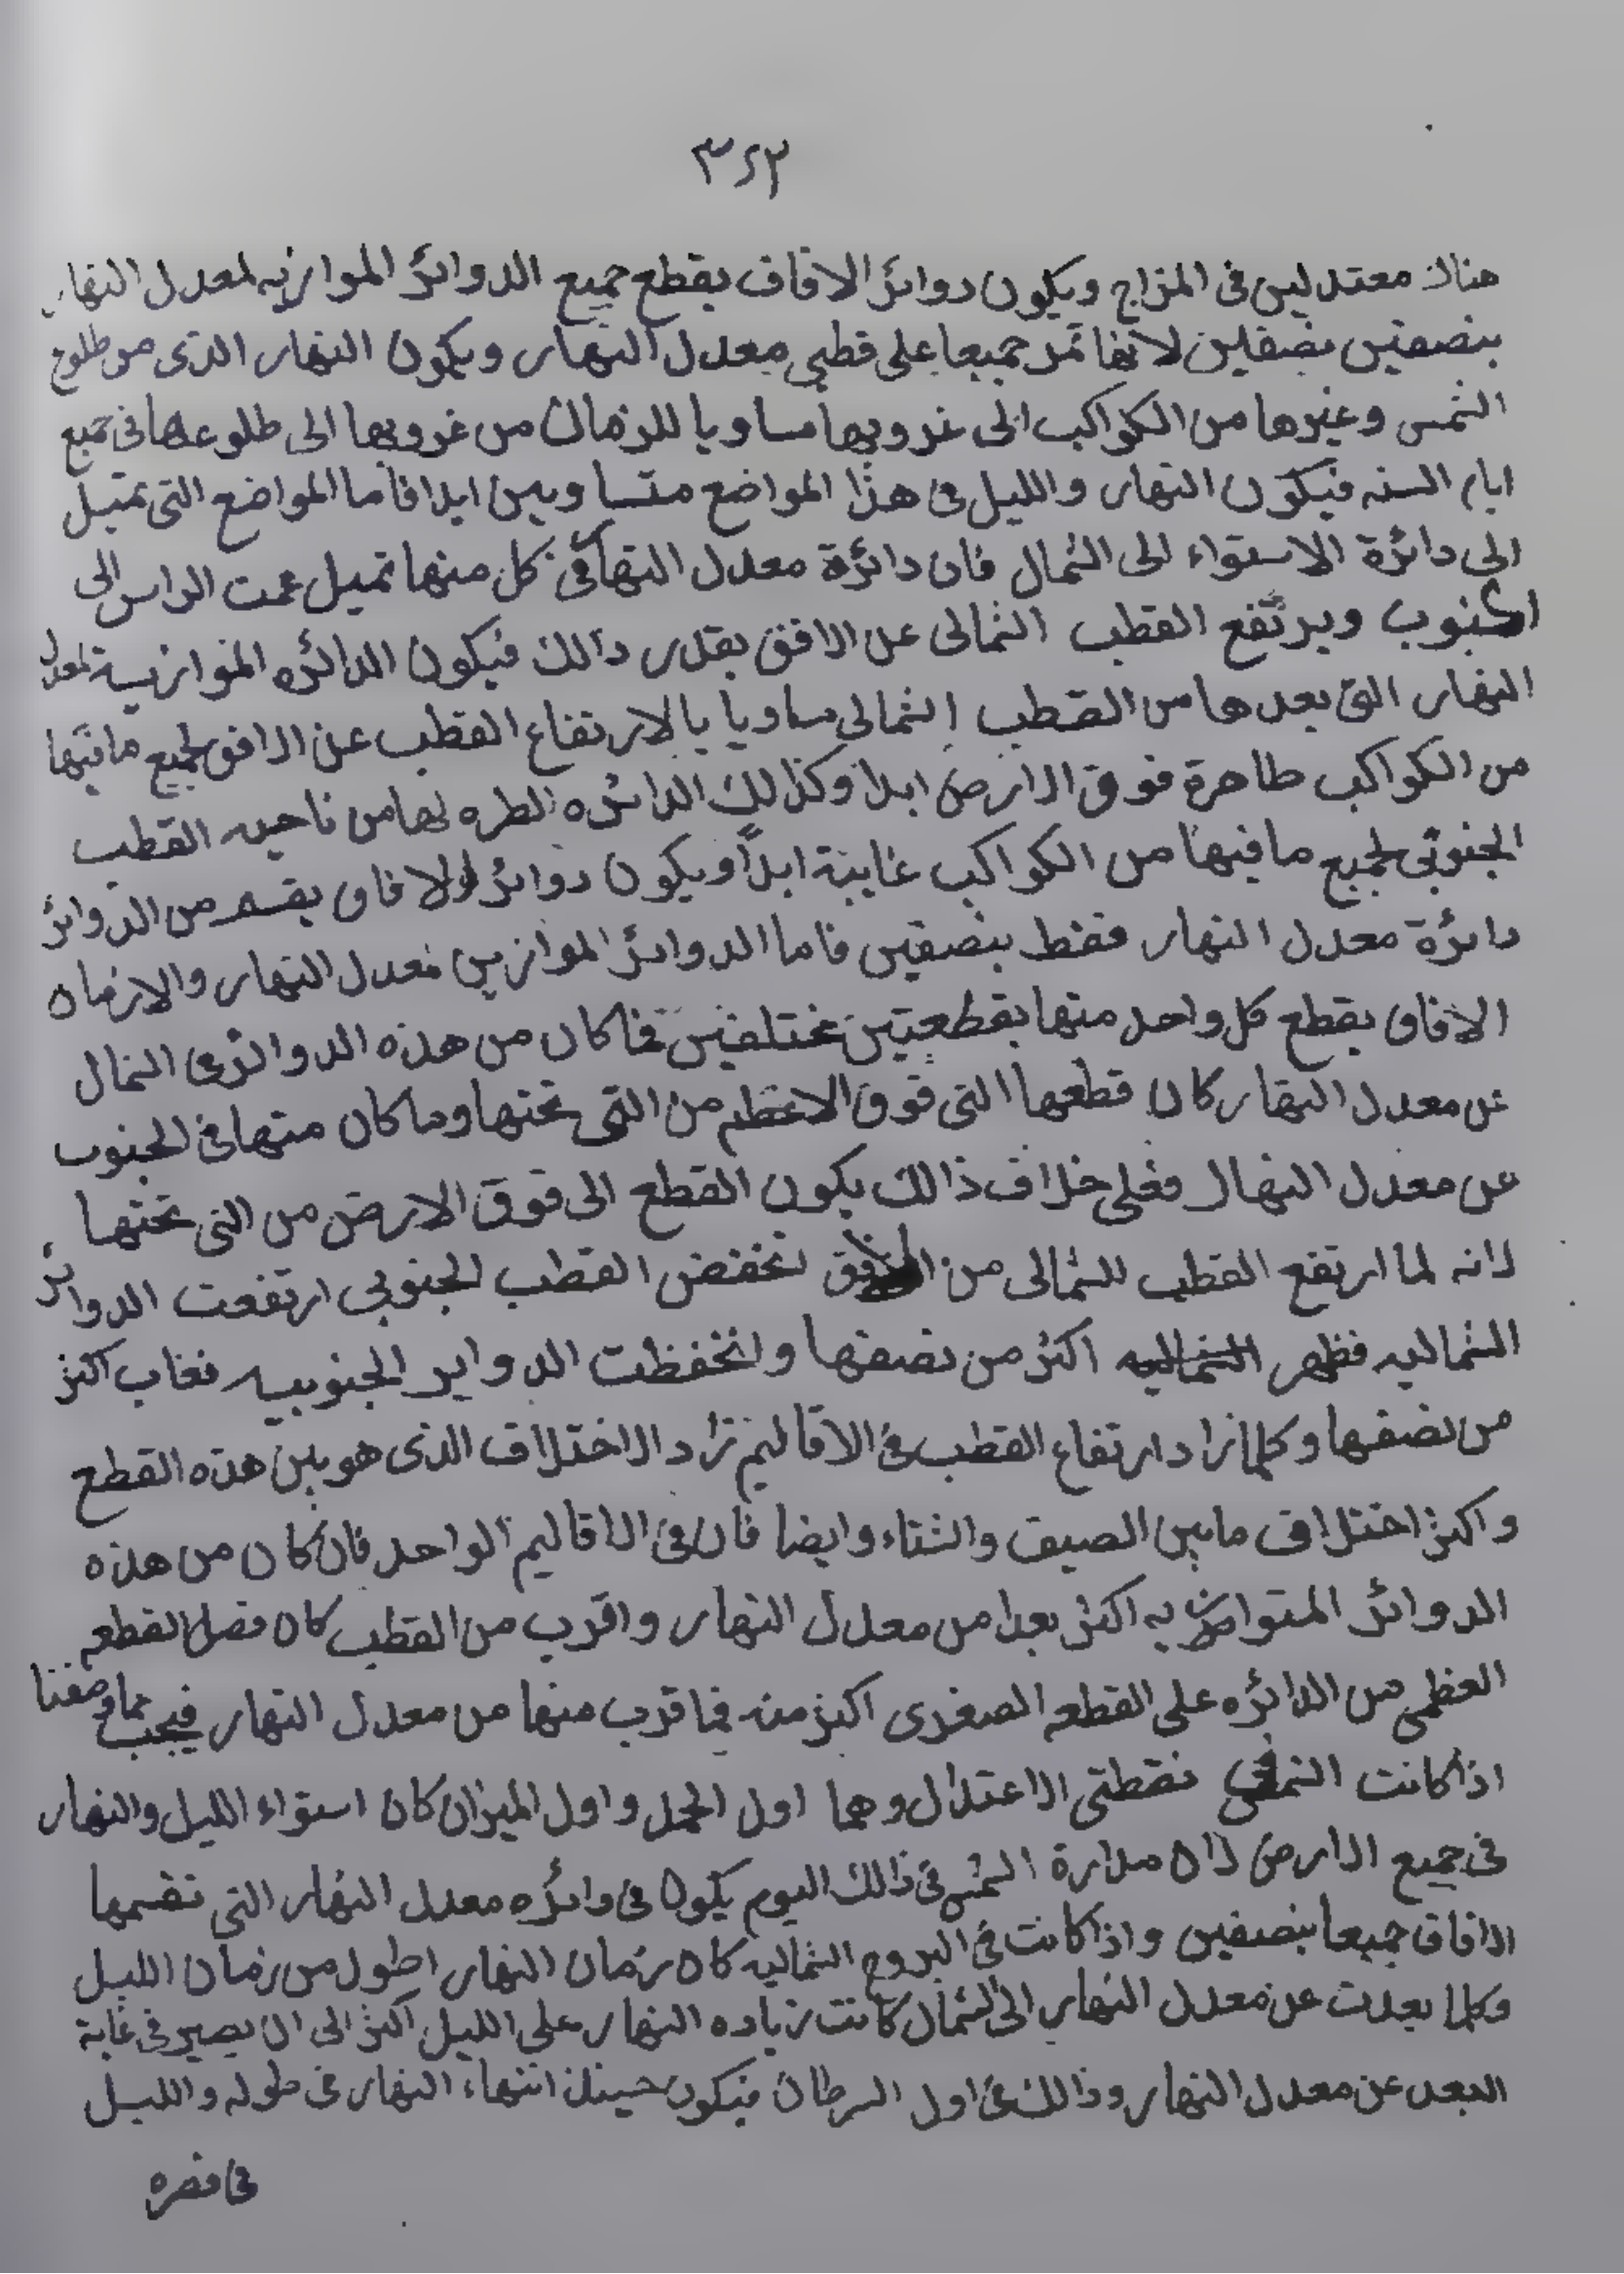 ٣٢٣
هناك معتدلين فى المزاج ويكون دوائر الافاق يقطع جميع الدوائر الموازيه لمعدل النهار
بنصفين نصفين لانها تمر جميعا على قطبي معدل النهار ويكون النهار الذى من طلوع
الشمس وغيرها من الكواكب الى غروبها مساويا للزمان من غروبها الى طلوعها فى جميع
ايام السنه فيكون النهار والليل فى هذا المواضع متساويين ابدا فاما المواضع التى تميل
الى دائرة الاستواء الى الشمال فان دائرة معدل النهار فى كل منها تميل عن سمت الراس الى
الجنوب ويرتفع القطب الشمالى عن الافق بقدر ذالك فيكون الدائره الموازيية لمعدل
النهار التى بعدها من القطب الشمالى مساويا بالارتفاع القطب عن الافق لجميع ما فيها
من الكواكب طاهرة فوق الارض ابدا وكذالك الدائره لها من ناحيه القطب
الجنوبى لجميع ما فيها من الكواكب غايبة ابداً ويكون دوائر الافاق يقسم من الدوائر
دائرة معدل النهار فقط بنصفين فاما الدوائر الموازيين لمعدل النهار والازمان
الافاق يقطع كل واحد منها بقطعتين مختلفين فما كان من هذه الدوائر فى الشمال
عن معدل النهار كان قطعها التى فوق الاعظم من التى تحتها وما كان منها فى الجنوب
عن معدل النهار فعلى خلاف ذالك يكون القطع الى فوق الارض من التى تحتها
لانه لما ارتفع القطب الشمالى من الافق انخفض القطب الجنوبى ارتفعت الدوائر
الشماليه فظهر الشماليه اكثر من نصفها وانخفظت الدواير الجنوبييه فغاب اكثر
من نصفها وكلما زاد ارتفاع القطب فى الاقاليم زاد الاختلاف الذى هو بين هذه القطع
واكثر اختلاف مابين الصيف والشتاء وايضا فان فى الاقاليم الواحد فان كان من هذه
الدوائر المتوازيه اكثر بعدا من معدل النهار واقرب من القطب كان فضل القطعه
العظمى من الدائره على القطعه الصغرى اكثر منه فيما قرب منها من معدل النهار فيجب مما وصفنا
اذا كانت الشمس فى نقطتى الاعتدال وهما اول الحمل واول الميزان كان استواء الليل والنهار
فى جميع الارض لان مدارة الشمس فى ذالك اليوم يكون فى دائره معدل النهار التى تقسمها
الافاق جميعا بنصفين واذا كانت فى البروج الشماليه كان زمان النهار اطول من زمان الليل
وكلما بعدت عن معدل النهار الى الشمال كانت زياده النهار على الليل اكثر الى ان يصير فى غاية
البعد عن معدل النهار وذالك فى اول السرطان فيكون حينئذ انتهاء النهار فى طوله والليل
فى قصره